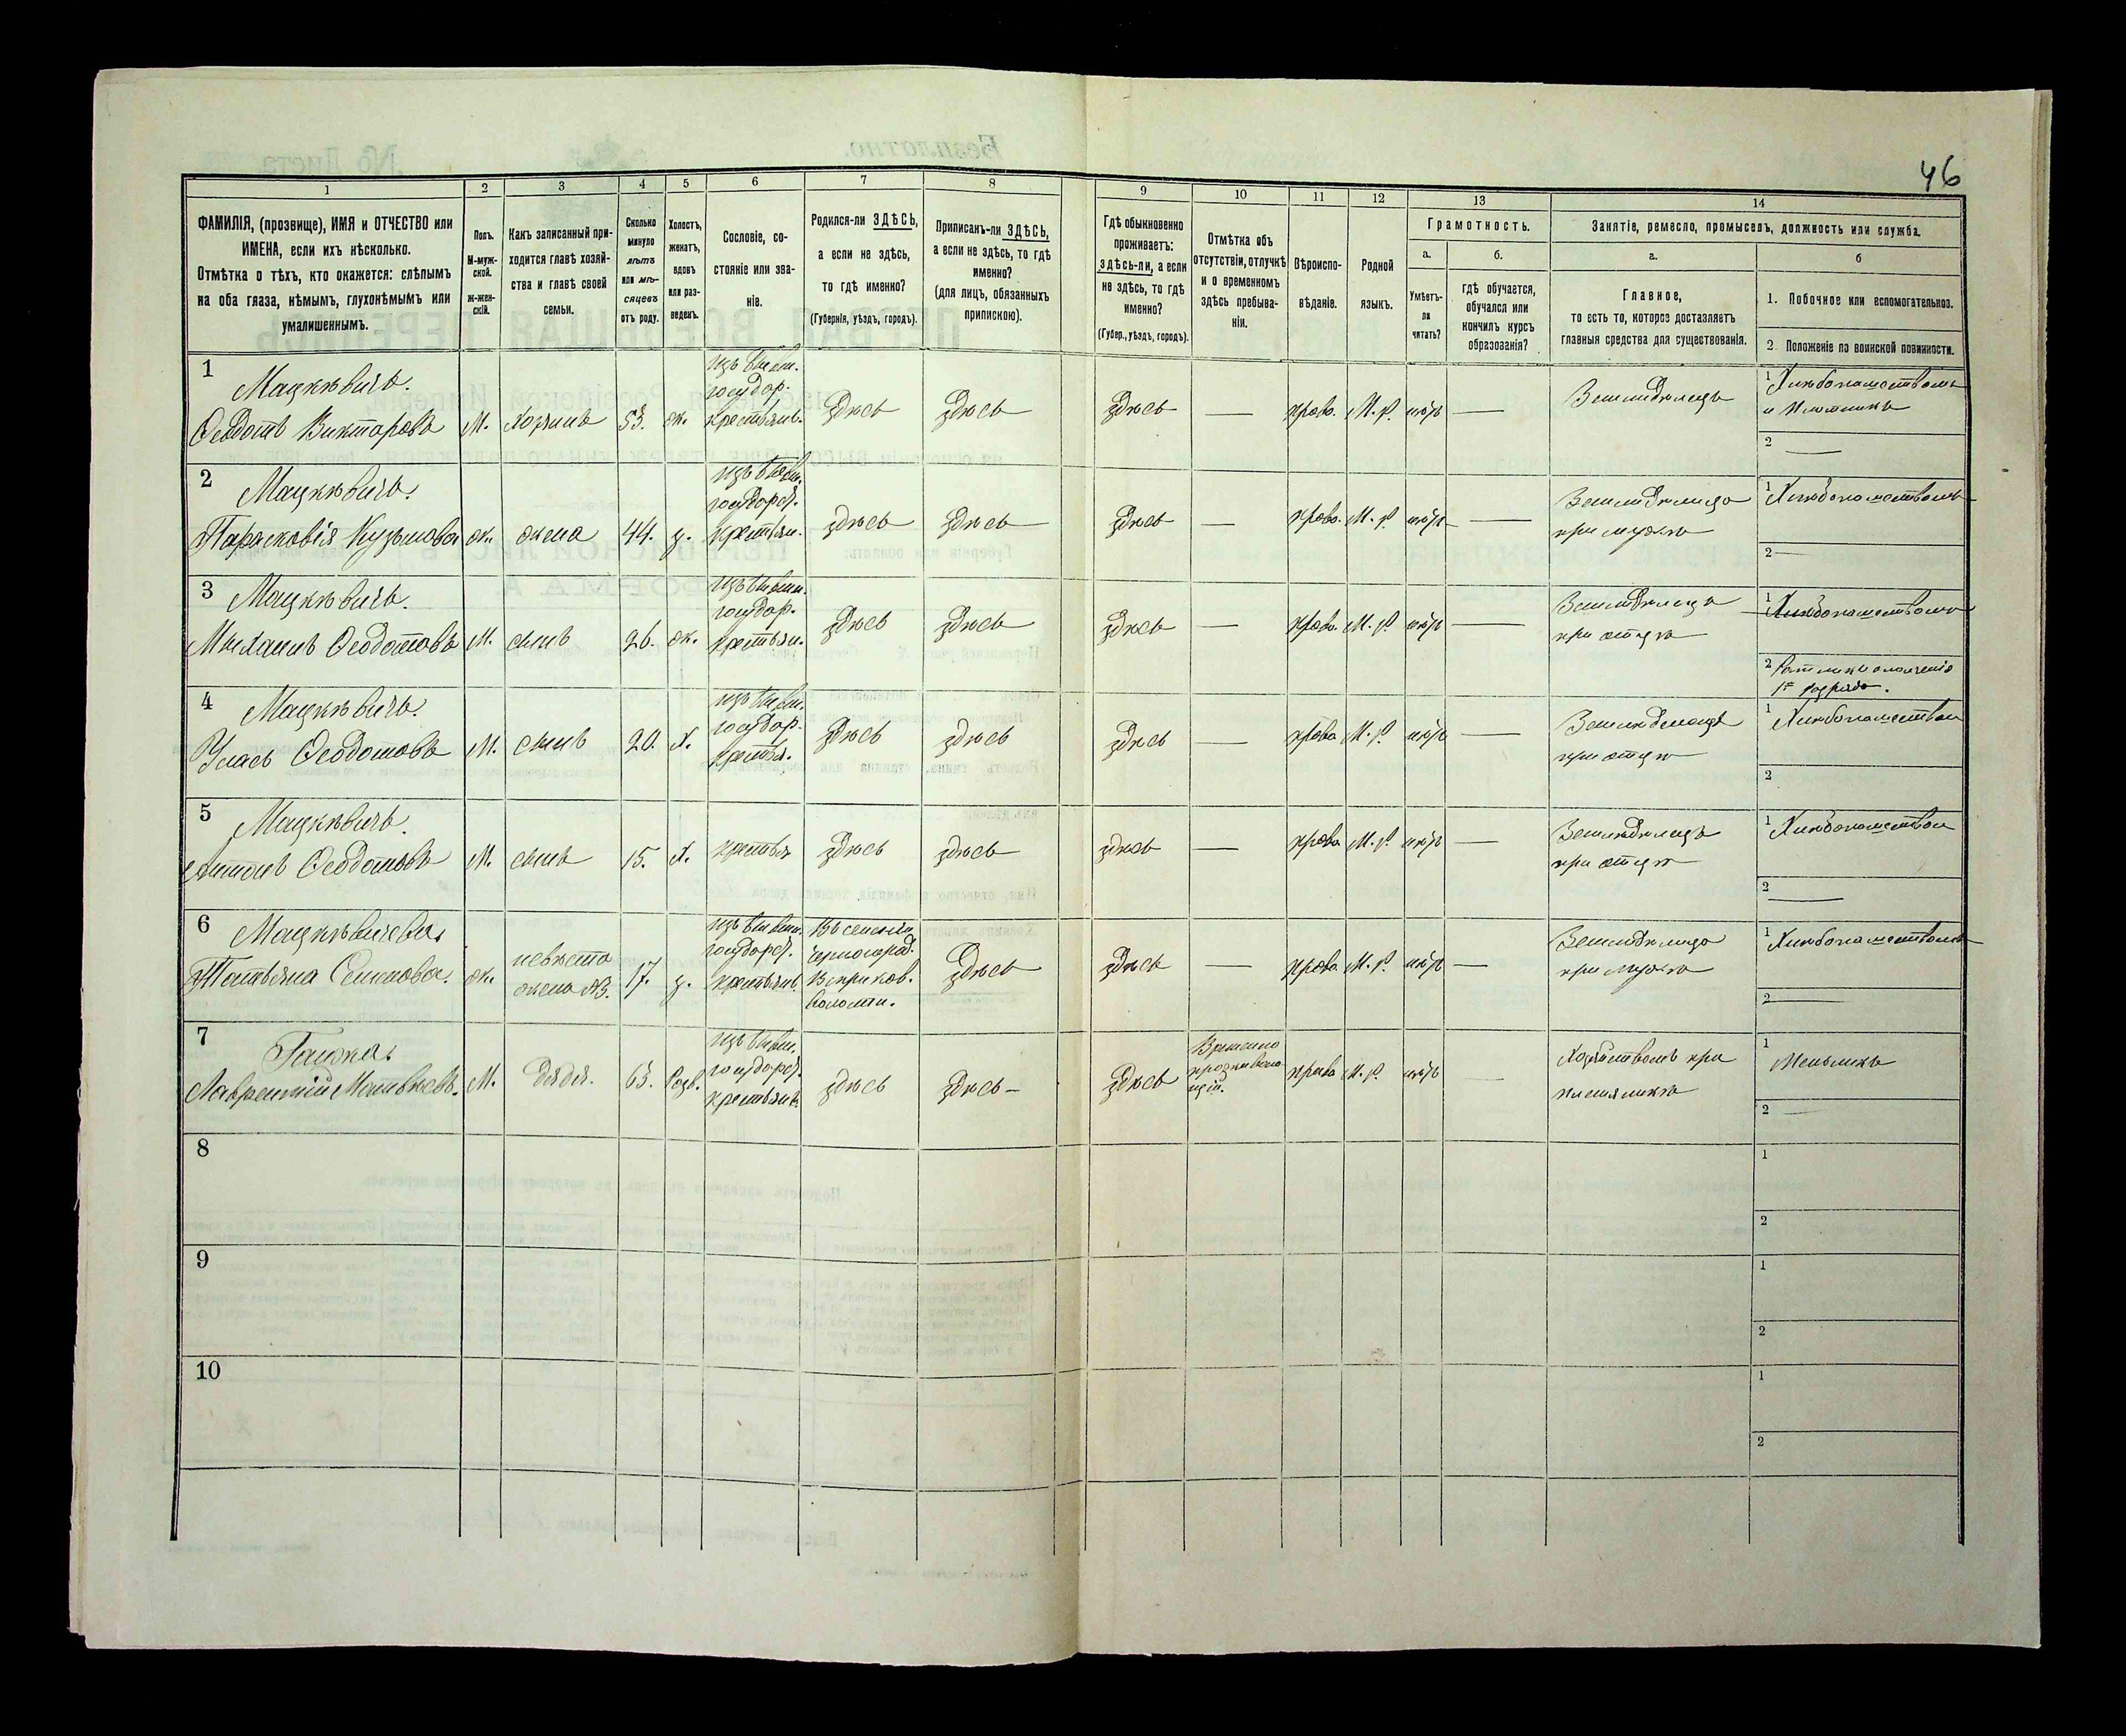 46
1 2 3 4 5 6 7 8 9 10 11 12 13 14
ФАМИЛІЯ, (прозвище), ИМЯ и ОТЧЕСТВО или
ИМЕНА, если ихъ нѣсколько.
Отмѣтка о тѣхъ, кто окажется: слѣпымъ
на оба глаза, нѣмымъ, глухонѣмымъ или
умалишеннымъ.
Полъ.
М-муж-
ской.
Ж-жен-
скій.
Какъ записанный при-
ходится главѣ хозяй-
ства и главѣ своей
семьи.
Сколько
минуло
лѣтъ
или мѣ-
сяцевъ
отъ роду.
Холостъ,
женатъ,
вдовъ
или раз-
веденъ.
Сословіе, со-
стояніе или зва-
ніе.
Родился-ли ЗДѢСЬ,
а если не здѣсь,
то гдѣ именно?
(Губернія, уѣздъ, городъ).
Приписанъ-ли ЗДѢСЬ,
а если не здѣсь, то гдѣ
именно?
(для лицъ, обязанныхъ
припискою).
Гдѣ обыкновенно
проживаетъ:
здѣсь-ли, а если
не здѣсь, то гдѣ
именно?
(Губер., уѣздъ, городъ).
Отмѣтка объ
отсутствіи, отлучкѣ
и о временномъ
здѣсь пребыва-
ніи.
Вѣроиспо-
вѣданіе.
Родной
языкъ.
Грамотность.
а.
Умѣетъ-
ли
читать?
б.
гдѣ обучается,
обучался или
кончилъ курсъ
образованія?
Занятіе, ремесло, промыселъ, должность или служба.
а.
Главное,
то есть то, которое доставляетъ
главныя средства для существованія.
б
1. Побочное или вспомогательное.
2 Положеніе по воинской повинности.
1 Мацкѣвичъ.
Ѳеодотъ Викторовъ М. хозяинъ 53. ж. крестьян. здѣсь здѣсь здѣсь — право. М. р. нѣтъ — Земледѣлецъ
2 —
2 Мацкѣвичъ.
Парасковія Кузьмова ж. жена 44. з. крестьян. здѣсь здѣсь здѣсь — право. М. р. нѣтъ — Земледѣлица
при мужѣ
2 —
3 Мацкѣвичъ.
Михаилъ Ѳеодотовъ М. сынъ 26. ж. крестьян. здѣсь здѣсь здѣсь — право. М. р. нѣтъ — Земледѣлецъ
при отцѣ
2 Ратникъ ополченія
1го разряда.
4 Мацкѣвичъ.
Уласъ Ѳеодотовъ М. сынъ 20. х. крестья. здѣсь здѣсь здѣсь — право М. р. нѣтъ — Земледѣлецъ
при отцѣ
2
5 Мацкѣвичъ.
Антонъ Ѳеодотовъ М. сынъ 15. х. крестья здѣсь здѣсь здѣсь — право М. р. нѣтъ — Земледѣлецъ
при отцѣ
2 —
6 Мацкѣвичева.
Татьяна ж. невѣста
жена №3. 17. з. крестьян. здѣсь здѣсь — право М. р. нѣтъ — Земледѣлица
при мужѣ
волости.
2 —
7
Лаврентій Матвѣевъ. М. дядя. 63. крестьян. здѣсь здѣсь — здѣсь Временно
право М. р. нѣтъ — при
племяникѣ
1 Мельникъ
2 —
8 1
2
9 1
2
10 1
2